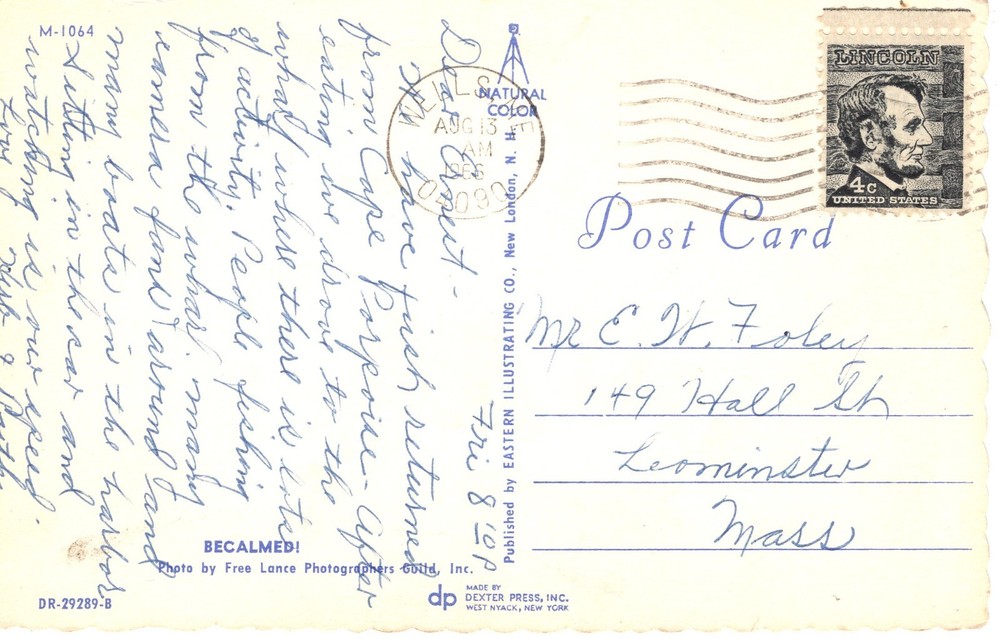 M-1064
Dear Ernest -
Fri 8:10 P
We have just returned
from Cape Porpoise - After
eating we drove to the
wharf where there is lots
of activity. People fishing
from the wharf, many
camera fans around and
many boats in the harbor
Sitting in the car and
watching is our speed.
Love Herb & Ruth
BECALMED!
Photo by Free Lance Photographers Guild, Inc.
DR-29289-B
dp MADE BY
DEXTER PRESS, INC.
WEST NYACK, NEW YORK
NATURAL
COLOR
Published by EASTERN ILLUSTRATING CO., New London, N. H.
AUG 13
AM
04090
LINCOLN
4c
UNITED STATES
Post Card
Mr E. W. Foley
149 Hall St
Leominster
Mass